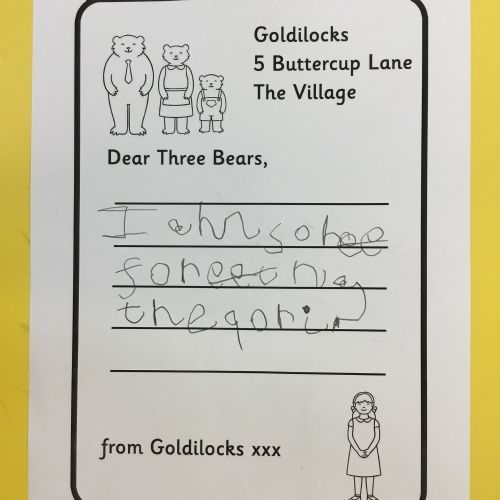 Goldilocks
5 Buttercup Lane
The Village
Dear Three Bears,
I am so
for eetnig
the porij
from Goldilocks xxx